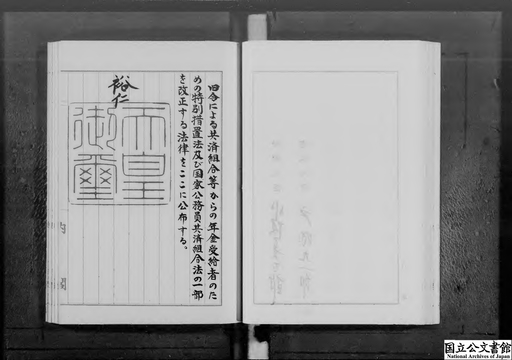 旧令による共済組合等からの年金受給者のた
めの特別措置法及び国家公務員共済組合法の一部
を改正する法律をここに公布する。
裕仁
天皇
御璽
内閣
国立公文書館
National Archives of Japan